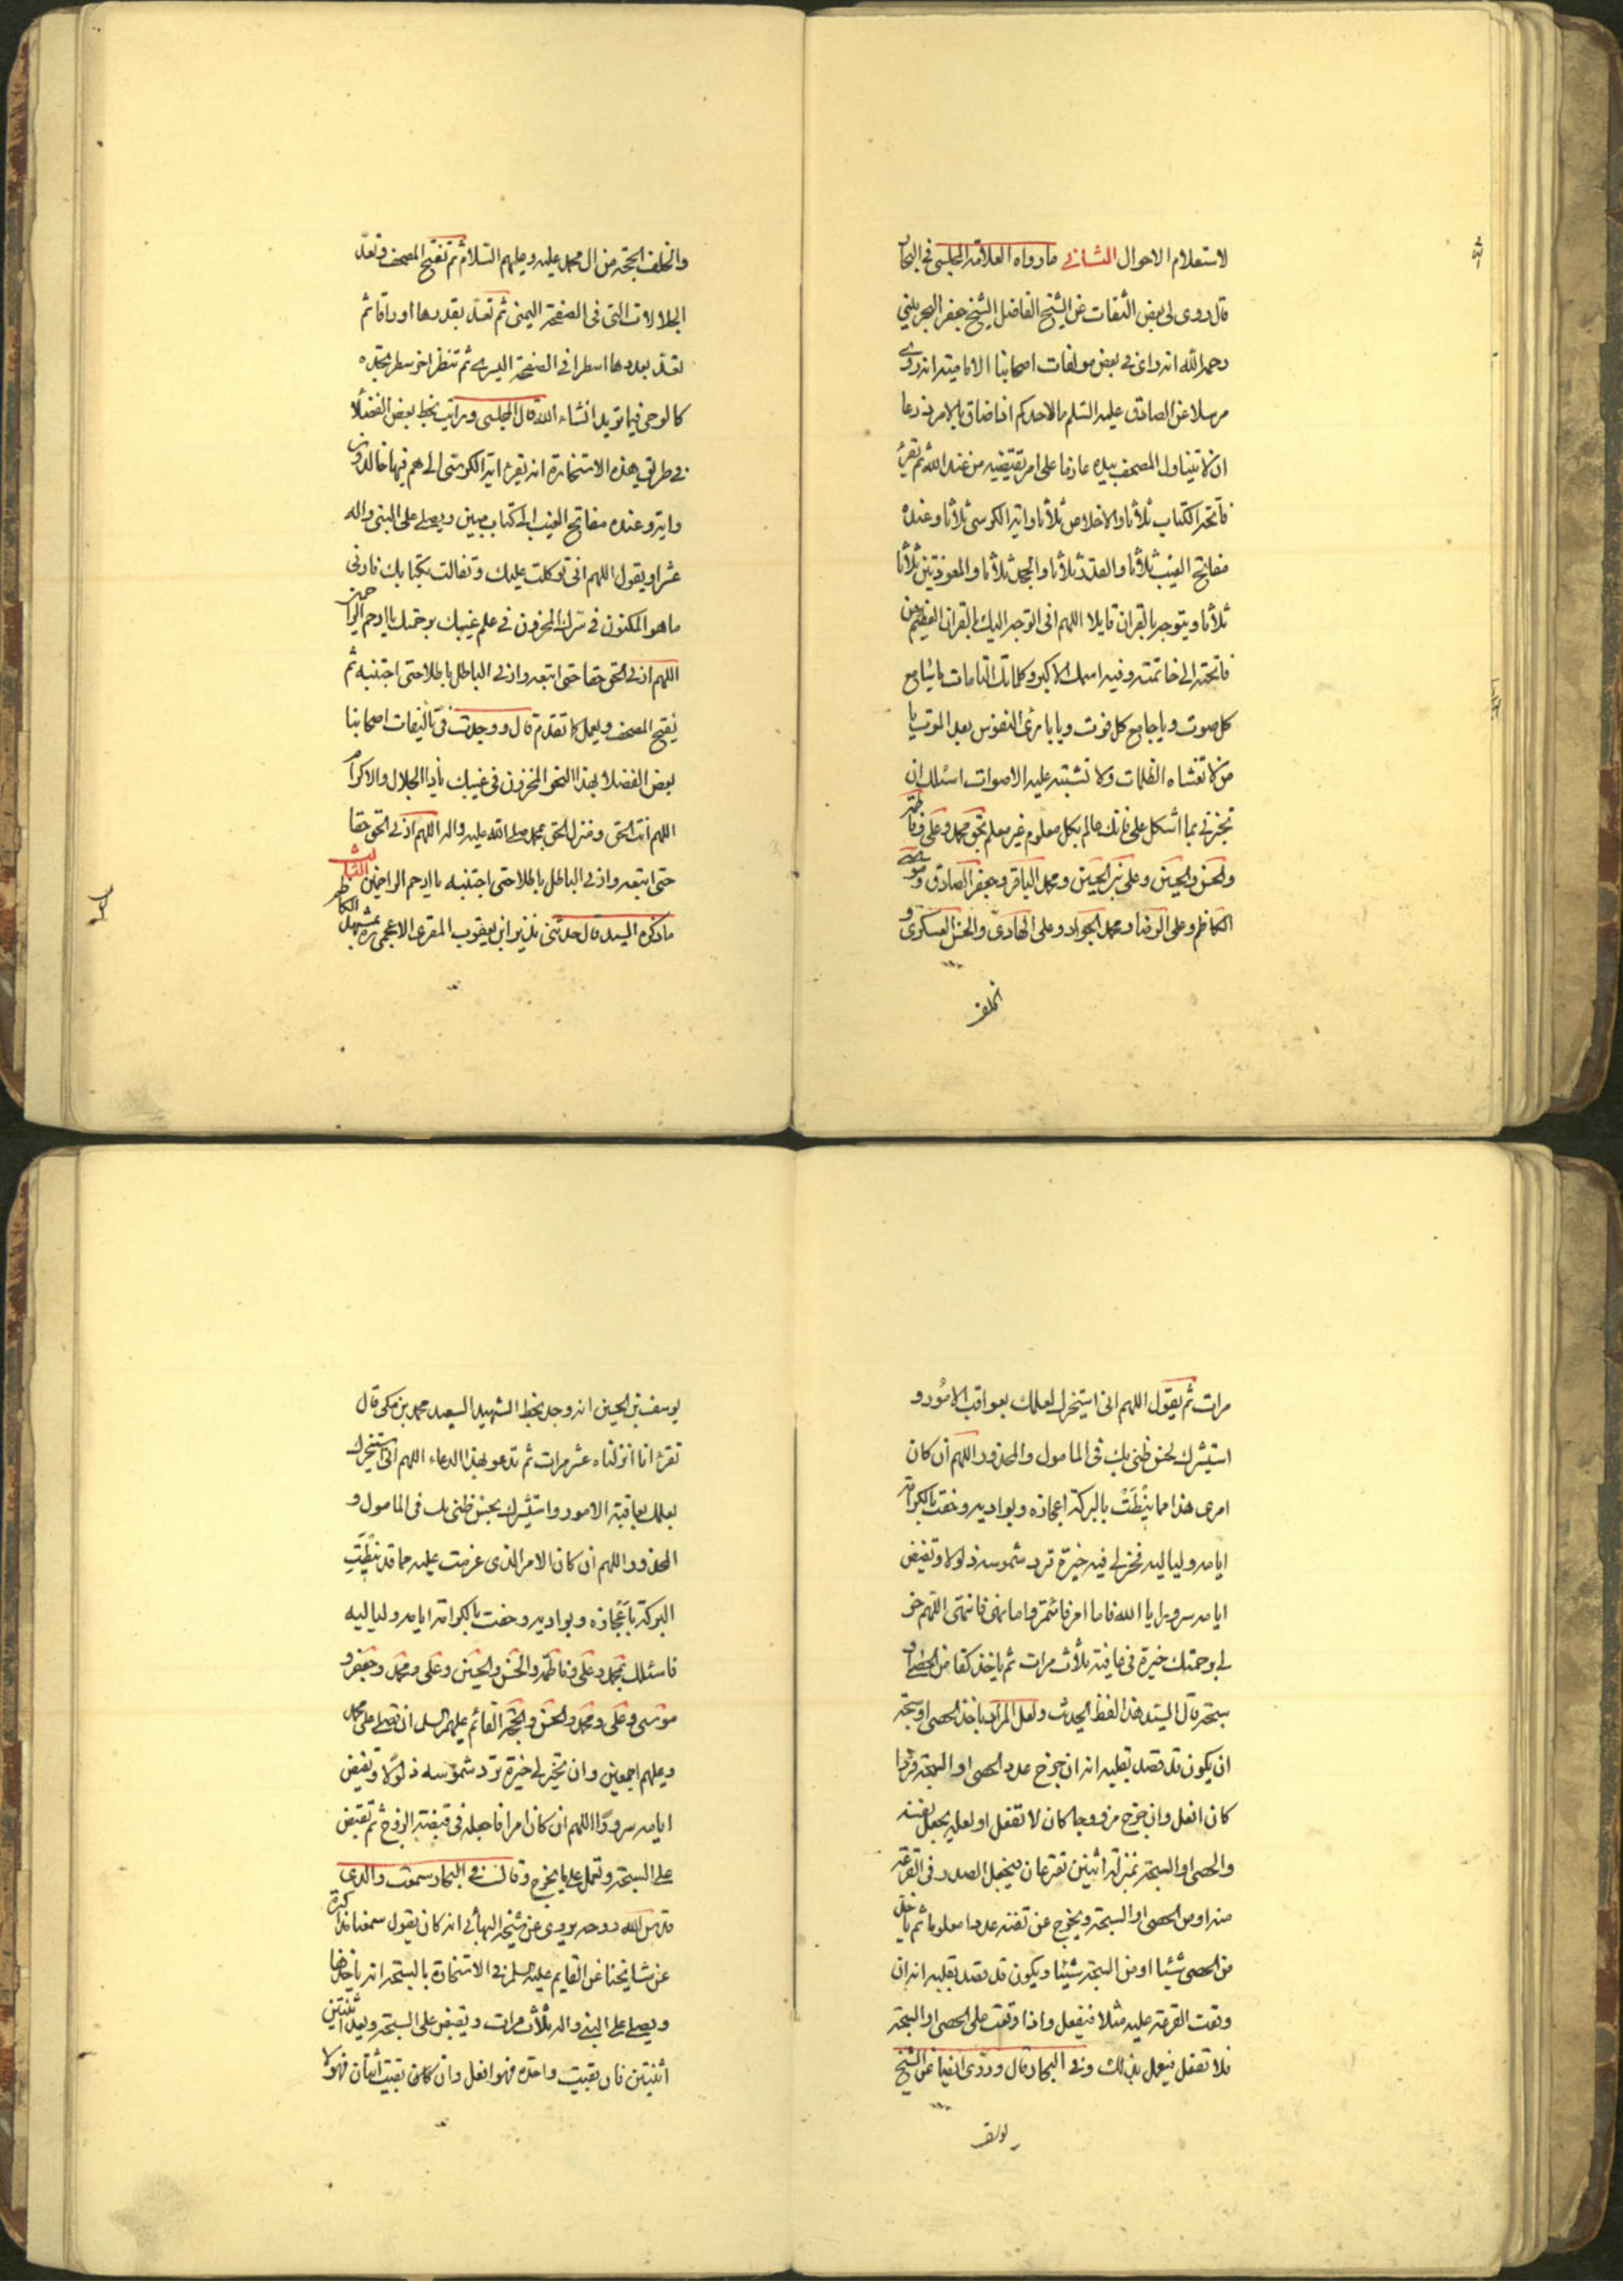 لاستعلام الاحوال الثاني ما رواه العلامة المجلسي في البحار
قال روى لي بعض الثقات عن الشيخ الفاضل الشيخ جعفر البحريني
رحمه الله انه راى في بعض مولفات اصحابنا الامامية انه روى
مرسلا عن الصادق عليه السلم ما لاحدكم اذا ضاق بالامر ذرعا
ان لا يتناول المصحف بيده عازما على امر يقتضيه من عند الله ثم يقرئ
فاتحة الكتاب ثلاثا والاخلاص ثلاثا واية الكرسي ثلاثا وعنده
مفاتح الغيب ثلاثا والقدر ثلاثا والجحد ثلاثا والمعوذتين ثلاثا
ثلاثا ويتوجه بالقران قايلا اللهم اني اتوجه اليك بالقران العظيم من
فاتحته الى خاتمته وفيه اسمك الاكبر وكلماتك التامات يا سامع
كل صوت ويا جامع كل فوت ويا بارئ النفوس بعد الموت يا
من لا تغشاه الظلمات ولا تشتبه عليه الاصوات اسئلك ان
تخير لي بما اشكل علي فانك عالم بكل معلوم غير معلم بحق محمد وعلي وفاطمة
والحسن والحسين وعلي بن الحسين ومحمد الباقر وجعفر الصادق وموسى
الكاظم وعلي الرضا ومحمد الجواد وعلي الهادي والحسن العسكري و
الخلف
والخلف الحجة من ال محمد عليه وعليهم السلام ثم تفتح المصحف وتعد
الجلالات التي في الصفحة اليمنى ثم تعد بقدرها اوراقا ثم
تعد بعددها اسطرا في الصفحة اليسرى ثم تنظر اخر سطر تجده
كالوحي فيما تريد انشاء الله قال المجلسي ورايت بخط بعض الفضلا
في طريق هذه الاستخارة انه يقرء اية الكرسي الى هم فيها خالدون
واية وعنده مفاتح الغيب الى كتاب مبين ويصلي على النبي واله
عشرا ويقول اللهم اني توكلت عليك وتفالت بكتابك فارني
ما هو المكنون في سرك المخزون في علم غيبك برحمتك يا ارحم الراحمين
اللهم ارني الحق حقا حتى اتبعه وارني الباطل باطلا حتى اجتنبه ثم
يفتح المصحف ويعمل كما تقدم قال ووجدت في تاليفات اصحابنا
بعض الفضلا بهذا النحو المخزون في غيبك يا ذا الجلال والاكرام
اللهم انت الحق ومنزل الحق بمحمد صلى الله عليه واله اللهم ارني الحق حقا
حتى اتبعه وارني الباطل باطلا حتى اجتنبه يا ارحم الراحمين الثالث
ما ذكره السيد قال حدثني بن يعقوب المقرئ الاعجمي بمشهد الكاظم
مرات ثم يقول اللهم اني استخيرك لعلمك بعواقب الامور و
استشيرك لحسن ظني بك في المامول والمحذور اللهم ان كان
امري هذا مما نيطت بالبركة اعجازه وبواديه وحفت بالكرامة
ايامه ولياليه فخر لي فيه خيرة ترد شموسه ذلولا وتقيض
ايامه سرورا يا الله فاما امر فائتمر واما نهي فانتهى اللهم خر
لي برحمتك خيرة في عافية ثلاث مرات ثم ياخذ كفا من الحصى او
سبحته قال السيد هذا لفظ الحديث ولعل المراد باخذ الحصى او سبحته
ان يكون قد قصد بقلبه انه ان خرج عدد الحصى او السبحة فردا
كان افعل وان خرج مزدوجا كان لا تفعل او لعله يجعل نفسه
والحصى او السبحة بمنزلة اثنين تقترعان فيجعل الصدر في القرعة
منه او من الحصى او السبحة ويخرج عن نفسه عددا معلوما ثم ياخذ
من الحصى شيئا او من السبحة شيئا ويكون قد قصد بقلبه انه ان
وقعت القرعة عليه مثلا فيفعل واذا وقعت على الحصى او السبحة
فلا تفعل فيعمل بذلك وفي البحار قال وروى ايضا عن الشيخ
يوسف
يوسف بن الحسين انه وجد بخط الشهيد السعيد محمد بن مكي قال
تقرء انا انزلناه عشر مرات ثم تدعو بهذا الدعاء اللهم اني استخيرك
بعلمك بعاقبة الامور واستشيرك بحسن ظني بك في المامول و
المحذور اللهم ان كان الامر الذي عزمت عليه مما قد نيطت
البركة باعجازه وبواديه وحفت بالكرامة ايامه ولياليه
فاسئلك بمحمد وعلي وفاطمة والحسن والحسين وعلي ومحمد وجعفر و
موسى وعلي ومحمد والحسن والحجة القائم عليهم السلم ان تصلي على محمد
وعليهم اجمعين وان تخير لي خيرة ترد شموسه ذلولا وتقيض
ايامه سرورا اللهم ان كان امرا فاجعله في قبضة الزوج ثم تقبض
على السبحة وتعمل على ما يخرج وقال في البحار سمعت والدي
قدس الله روحه يروي عن شيخه البهائي انه كان يقول سمعنا مذاكرة
عن مشايخنا عن القايم عليه السلم في الاستخارة بالسبحة انه ياخذها
ويصلي على النبي واله ثلاث مرات ويقبض على السبحة ويعد اثنتين
اثنتين فان بقيت واحدة فهو افعل وان كان بقيت اثنتان فهو لا